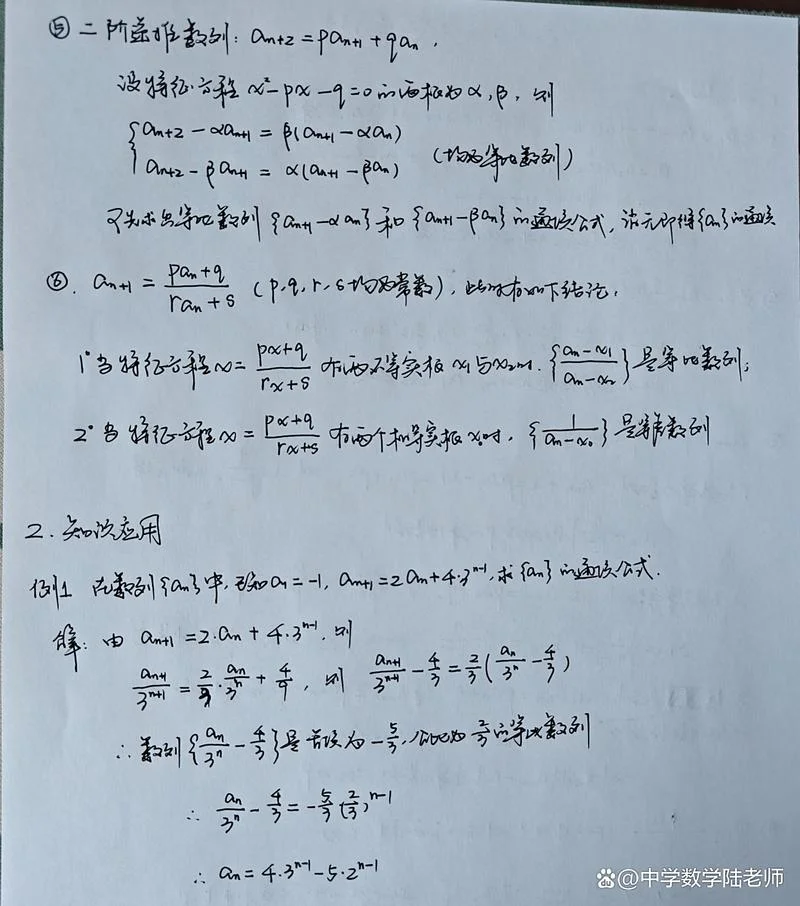 ⑤ 二阶递推数列：aₙ₊₂ = paₙ₊₁ + qaₙ，
设特征方程 x² - px - q = 0 的两根为 α, β，则
{ aₙ₊₂ - αaₙ₊₁ = β(aₙ₊₁ - αaₙ)
aₙ₊₂ - βaₙ₊₁ = α(aₙ₊₁ - βaₙ) (均为等比数列)
可先求出等比数列 {aₙ₊₁ - αaₙ} 和 {aₙ₊₁ - βaₙ} 的通项公式，消元即得{aₙ}的通项
⑥. aₙ₊₁ = (paₙ+q)/(raₙ+s) (p, q, r, s 均为常数)，此时有如下结论：
1° 当特征方程 x = (px+q)/(rx+s) 有两不等实根 x₁ 与 x₂ 时. {(aₙ-x₁)/(aₙ-x₂)} 是等比数列；
2° 当特征方程 x = (px+q)/(rx+s) 有两个相等实根 x₀ 时，{1/(aₙ-x₀)} 是等差数列
2. 知识应用
例1 在数列{aₙ}中，已知 a₁ = -1, aₙ₊₁ = 2aₙ + 4·3ⁿ⁻¹, 求{aₙ}的通项公式.
解：由 aₙ₊₁ = 2·aₙ + 4·3ⁿ⁻¹, 则
aₙ₊₁/3ⁿ⁺¹ = 2/3·aₙ/3ⁿ + 4/9, 则 aₙ₊₁/3ⁿ⁺¹ - 4/3 = 2/3(aₙ/3ⁿ - 4/3)
∴ 数列{aₙ/3ⁿ - 4/3}是首项为 -5/3, 公比为 2/3 的等比数列
∴ aₙ/3ⁿ - 4/3 = -5/3·(2/3)ⁿ⁻¹
∴ aₙ = 4·3ⁿ⁻¹ - 5·2ⁿ⁻¹
@中学数学陆老师